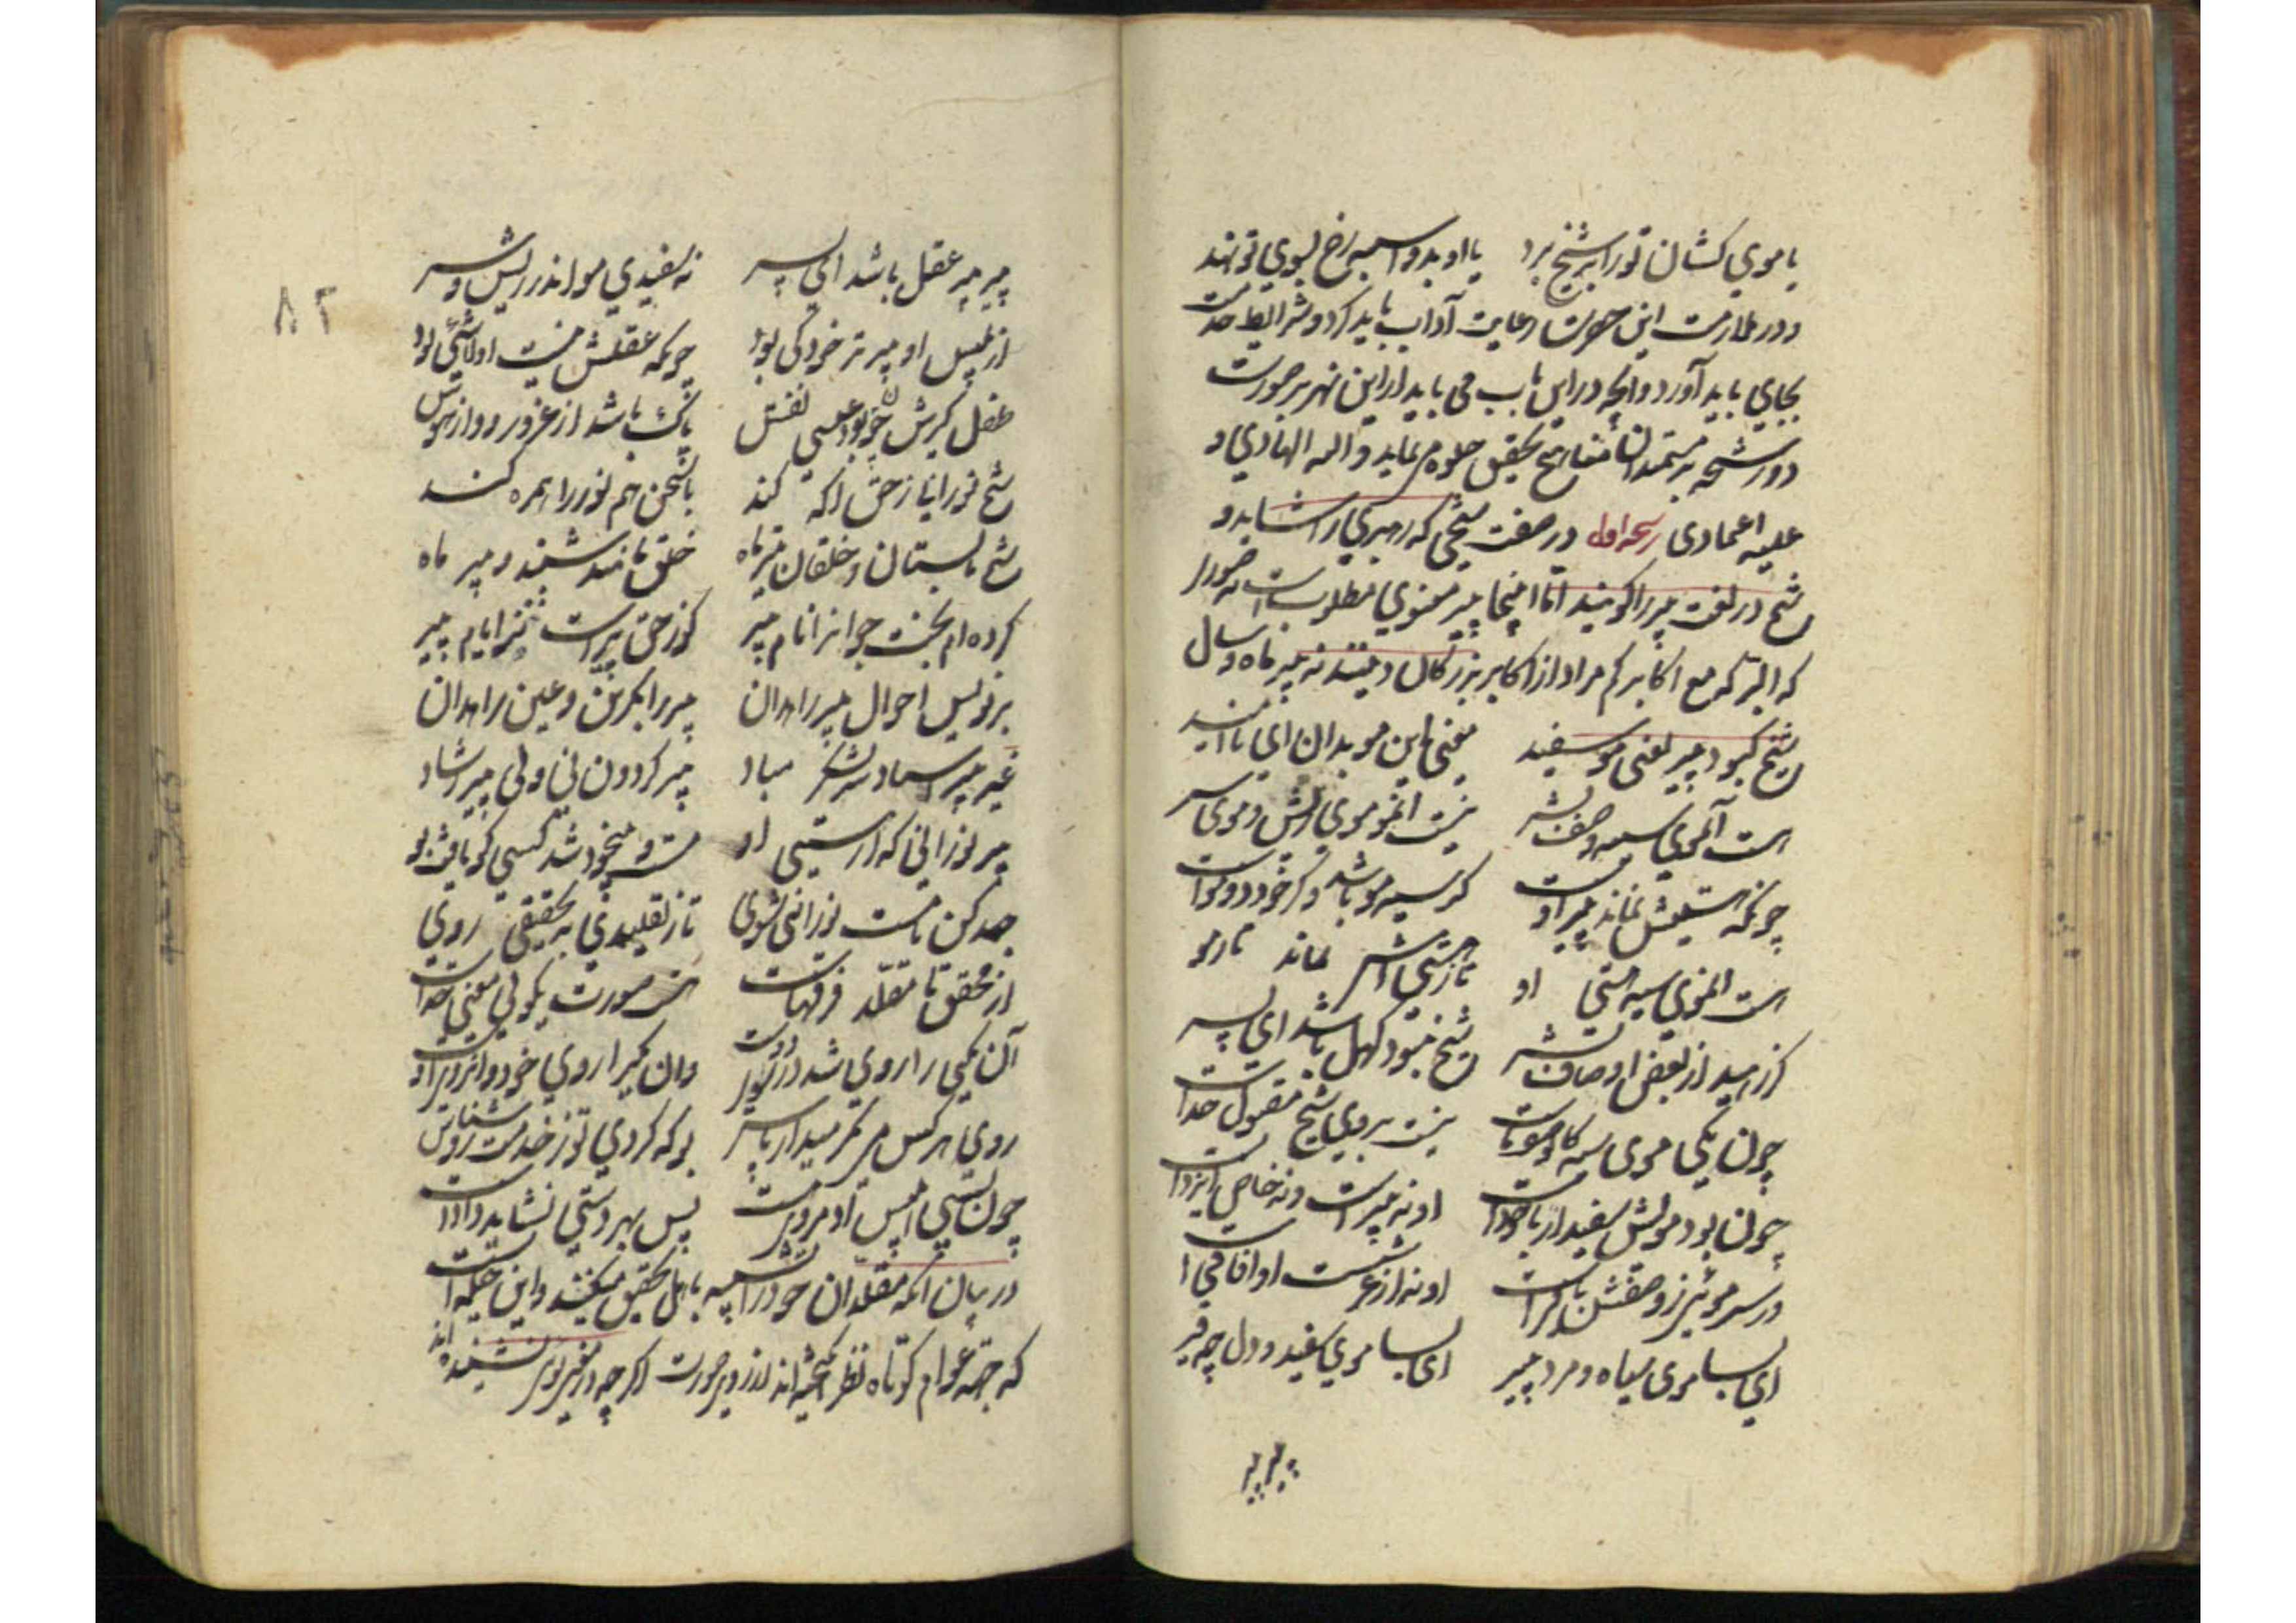 یا موی کشان تو را بر شیخ برد یا او بدو اسبه رخ بسوی تو نهد
و در ملازمت این حضرت رعایت آداب باید کرد و شرایط خدمت
بجای باید آورد و آنچه در این باب می باید از این نهر بر صورت
دو رشحه بر مستعدان مفاتیح تحقیق جلوه می نماید و الله الهادی و
علیه اعتمادی رشحه اول در صفت شیخی که رهبری را شاید و
شیخ در لغت پیر را گویند اما اینجا پیر معنوی مطلوبست نه صوری
که البرکه مع اکابرکم مراد از اکابر بزرگان دینند نه پیر ماه و سال
شیخ کبود پیر یعنی مو سفید معنی این مو بدان ای ناامید
هست آن موی سیه وصف بشر نیست آن مو موی ریش و موی سر
چونکه هستیش نماند پیر اوست گر سیه مو باشد و گر خود دو موست
هست آن موی سیه هستی او تا ز هستی اش نماند تار مو
گر رهید از بعض اوصاف بشر شیخ نبود کهل باشد ای پسر
چون یکی موی سیه کان وصف ماست نیست بر وی شیخ مقبول خداست
چون بود مویش سفید ار با خودست او نه پیرست و نه خاص ایزدست
ور سر موئی ز وصفش باقیست او نه از عرشست او آفاقیست
ای بسا موی سیاه و مرد پیر ای بسا موی سفید و دل چو قیر
پیر پیر
۸۲
پیر پیر عقل باشد ای پسر نه سفیدی مو اندر ریش و سر
از بلیس او پیرتر خود کی بود چونکه عقلش نیست او لاشئی بود
طفل گیرش چون بود عیسی نفس پاک باشد از غرور و از هوس
شیخ نورانی ز حق آگه کند با سخن هم نور را همره کند
شیخ تابستان و خلقان تیر ماه خلق مانند شبند و پیر ماه
کرده ام بخت جوان را نام پیر کو ز حق پیرست نز ایام پیر
بر نویس احوال پیر راهدان پیر را بگزین و عین راه دان
غیر پیر استاد و سرلشکر مباد پیر گردون نی ولی پیر رشاد
پیر نورانی که از هستی او مست و بیخود شد کسی کو یافت بو
جهد کن تا مست نورانی شوی تا ز تقلیدی به تحقیقی روی
از محقق تا مقلد فرقهاست این صورت نگوئی معنی جداست
آن یکی را روی شد در روی دوست وان یکی را روی خود وا روی اوست
روی هر کس می نگر میدار پاس بو که گردی تو ز خدمت روشناس
چون بسی ابلیس آدم روی هست پس بهر دستی نشاید داد دست
در بیان آنکه مقلدان خود را تشبیه با اهل تحقیق میکنند و این حیله ایست
که جهة عوام کوتاه نظر انگیخته اند از روی صورت اگر چه در معنی نشنیده اند